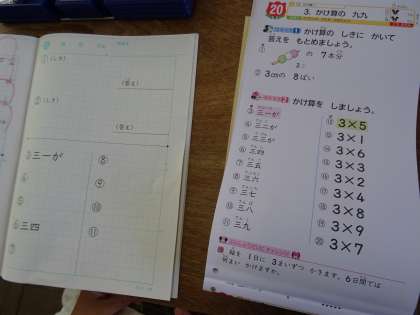 ①(しき)
(答え)
②(しき)
(答え)
③三一が
④
⑤
⑥三四
⑦
⑧
⑨
⑩
⑪
20
3. かけ算の 九九
1 かけ算の しきに かいて
答えを もとめましょう。
①
の 7本分
3こ
② 3cmの 8ばい
2 かけ算を しましょう。
③ 三一が
④ 三二が
⑤ 三三が
⑥ 三四
⑦ 三五
⑧ 三六
⑨ 三七
⑩ 三八
⑪ 三九
⑫ 3×5
⑬ 3×1
⑭ 3×6
⑮ 3×3
⑯ 3×2
⑰ 3×4
⑱ 3×8
⑲ 3×9
⑳ 3×7
1日に 3まいずつ かきます。6日間では
何まい かけますか。